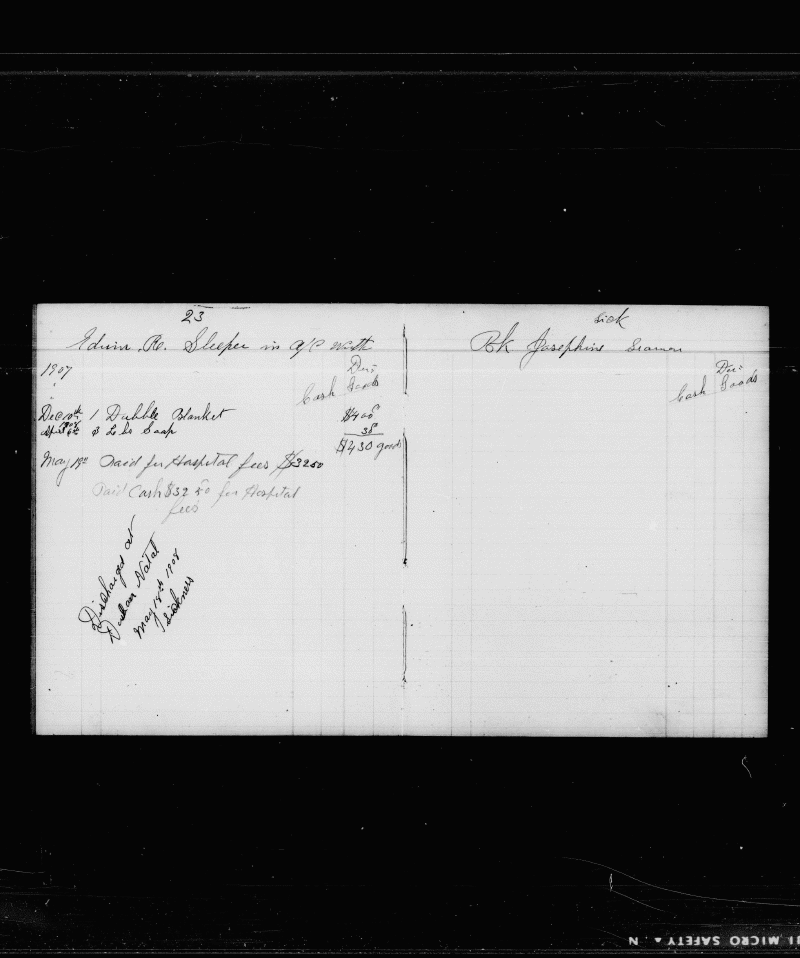 23
Edwin. R. Sleeper in a/c with
1907
Dr:
Cash Goods
Dec 10th 1 Dubble Blanket $4 00
1908
Apr 6th Soap 30
$4 30 goods
May 18th Paid for Hospital fees $32 50
Paid Cash $32 50 for Hospital
fees
Discharged at
Durban Natal
May 18th 1908
Sickness
Sick
Bk Josephine Seaman
Dr:
Cash Goods
MICRO SAFETY ▲ N